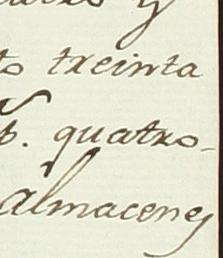 y
to treinta
p. quatro-
almacenes